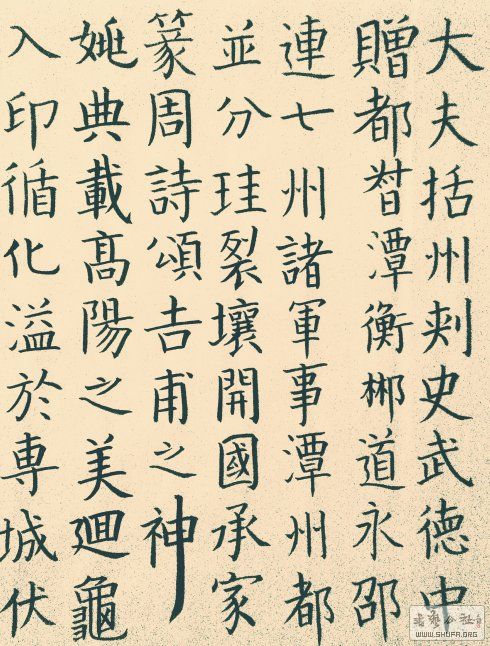 大夫括州刾史武德中
贈都督潭衡郴道永邵
連七州諸軍事潭州都
並分珪裂壤開國承家
篆周詩頌吉甫之神
姚典載髙陽之美廻龜
入印循化溢於専城伏
書藝公社
WWW.SHUFA.ORG